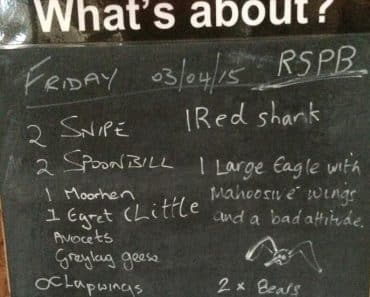 What's about?
FRIDAY 03/04/15 RSPB
2 SNIPE
2 SPOONBILL
1 Moorhen
1 Egret (Little
Avocets
Greylag geese
OC Lapwings
1 Red shank
1 Large Eagle with
Mahoosive wings
and a bad attitude.
2 x Bears